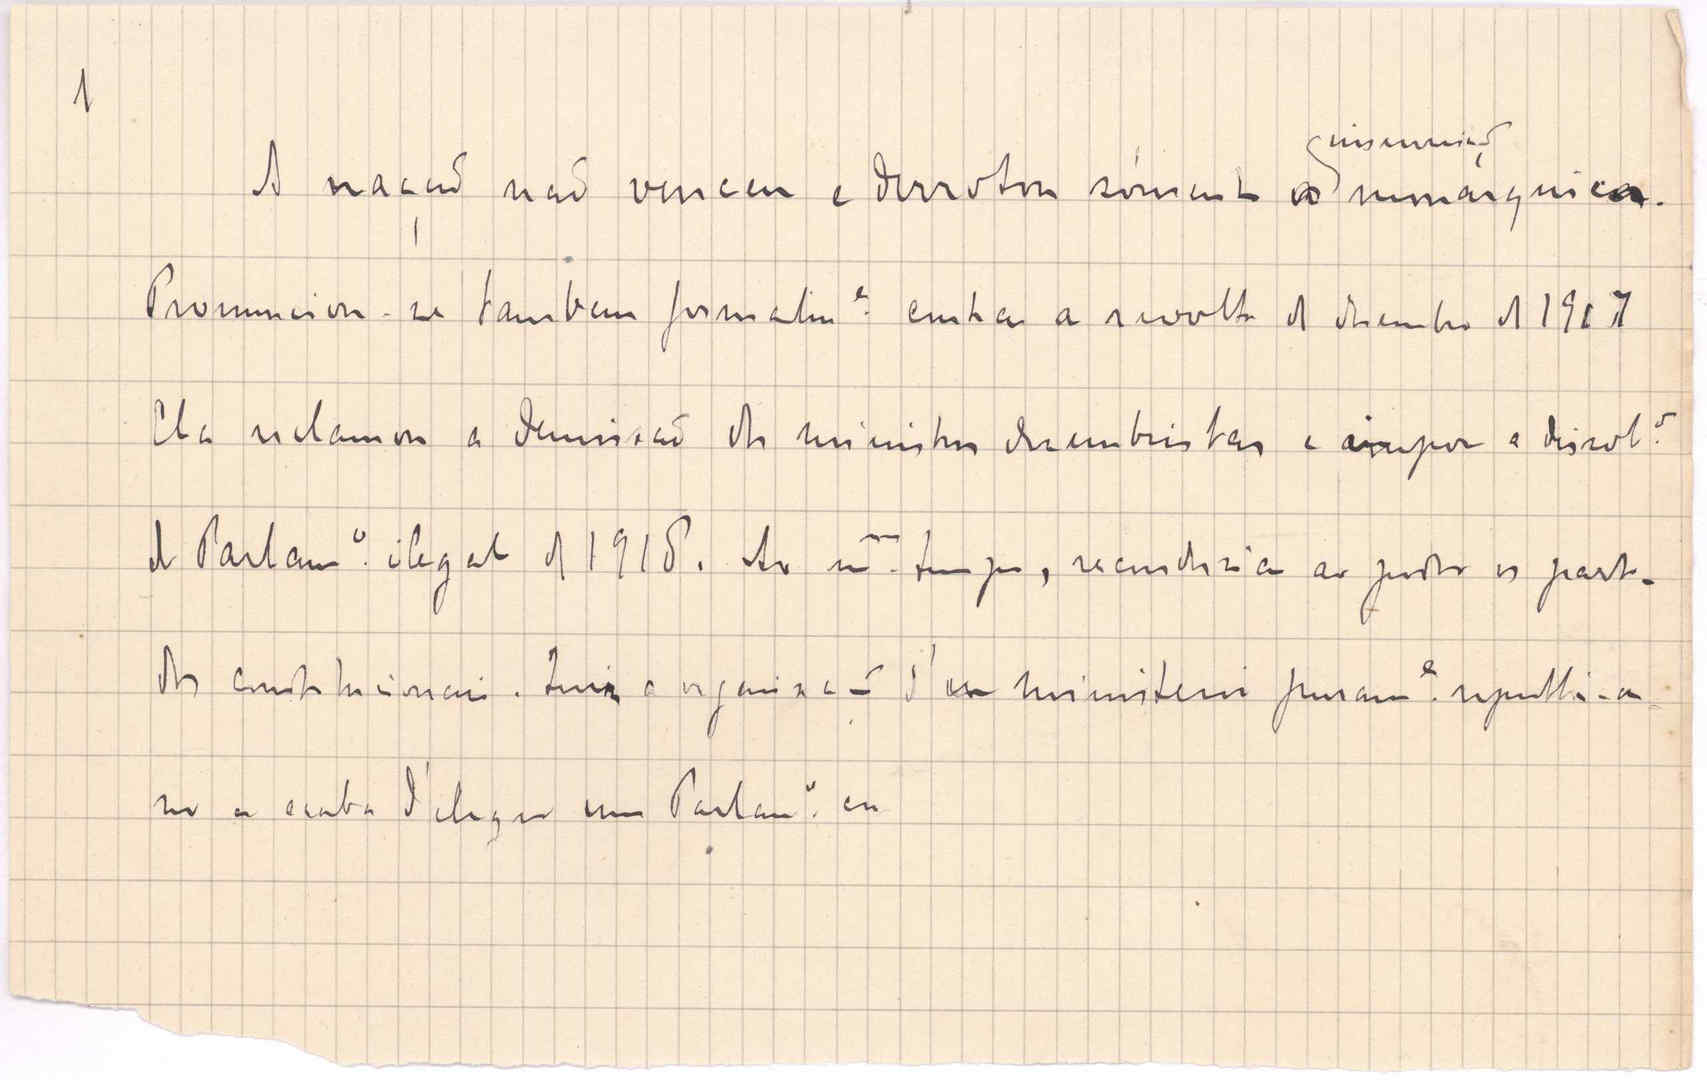 1
insurreição
A nação não venceu e derrotou sómente a monárquica.
Pronunciou-se tambem formalme. contra a revolta de dezembro de 1917
Ela reclamou a demissão dos ministros dezembristas e impoz a dissolo.
do Parlamo. ilegal de 1918. Ao mmo. tempo, reconduzia ao poder os parti-
dos constitucionais. a organização d'um ministerio purame. republica-
no e acaba d'eleger um Parlamo. em